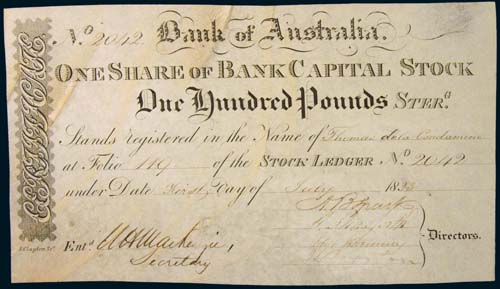 CERTIFICATE
No. 2042. Bank of Australia.
ONE SHARE OF BANK CAPITAL STOCK
One Hundred Pounds STERG.
Stands registered in the Name of Thomas dela Condamine
at Folio 149 of the STOCK LEDGER No. 2042
under Date First Day of July 1833
Entd. Mackenzie,
Secretary
Directors.